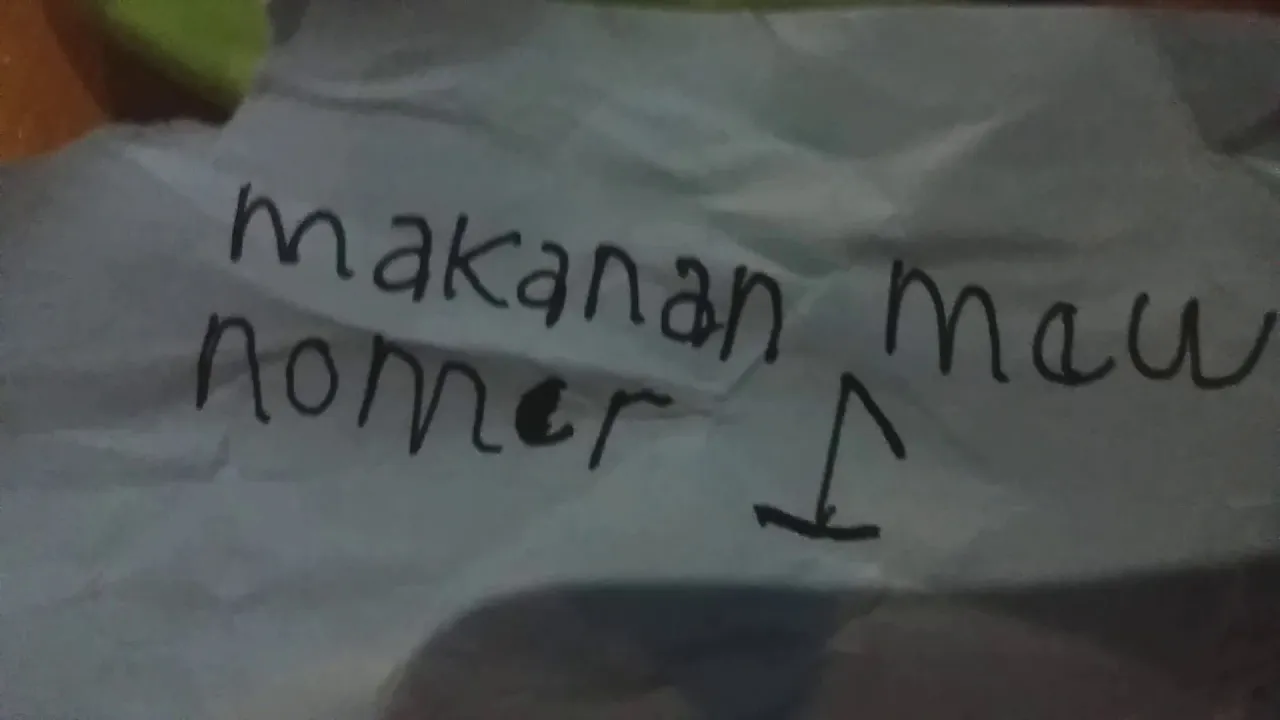 makanan mau
nomer 1